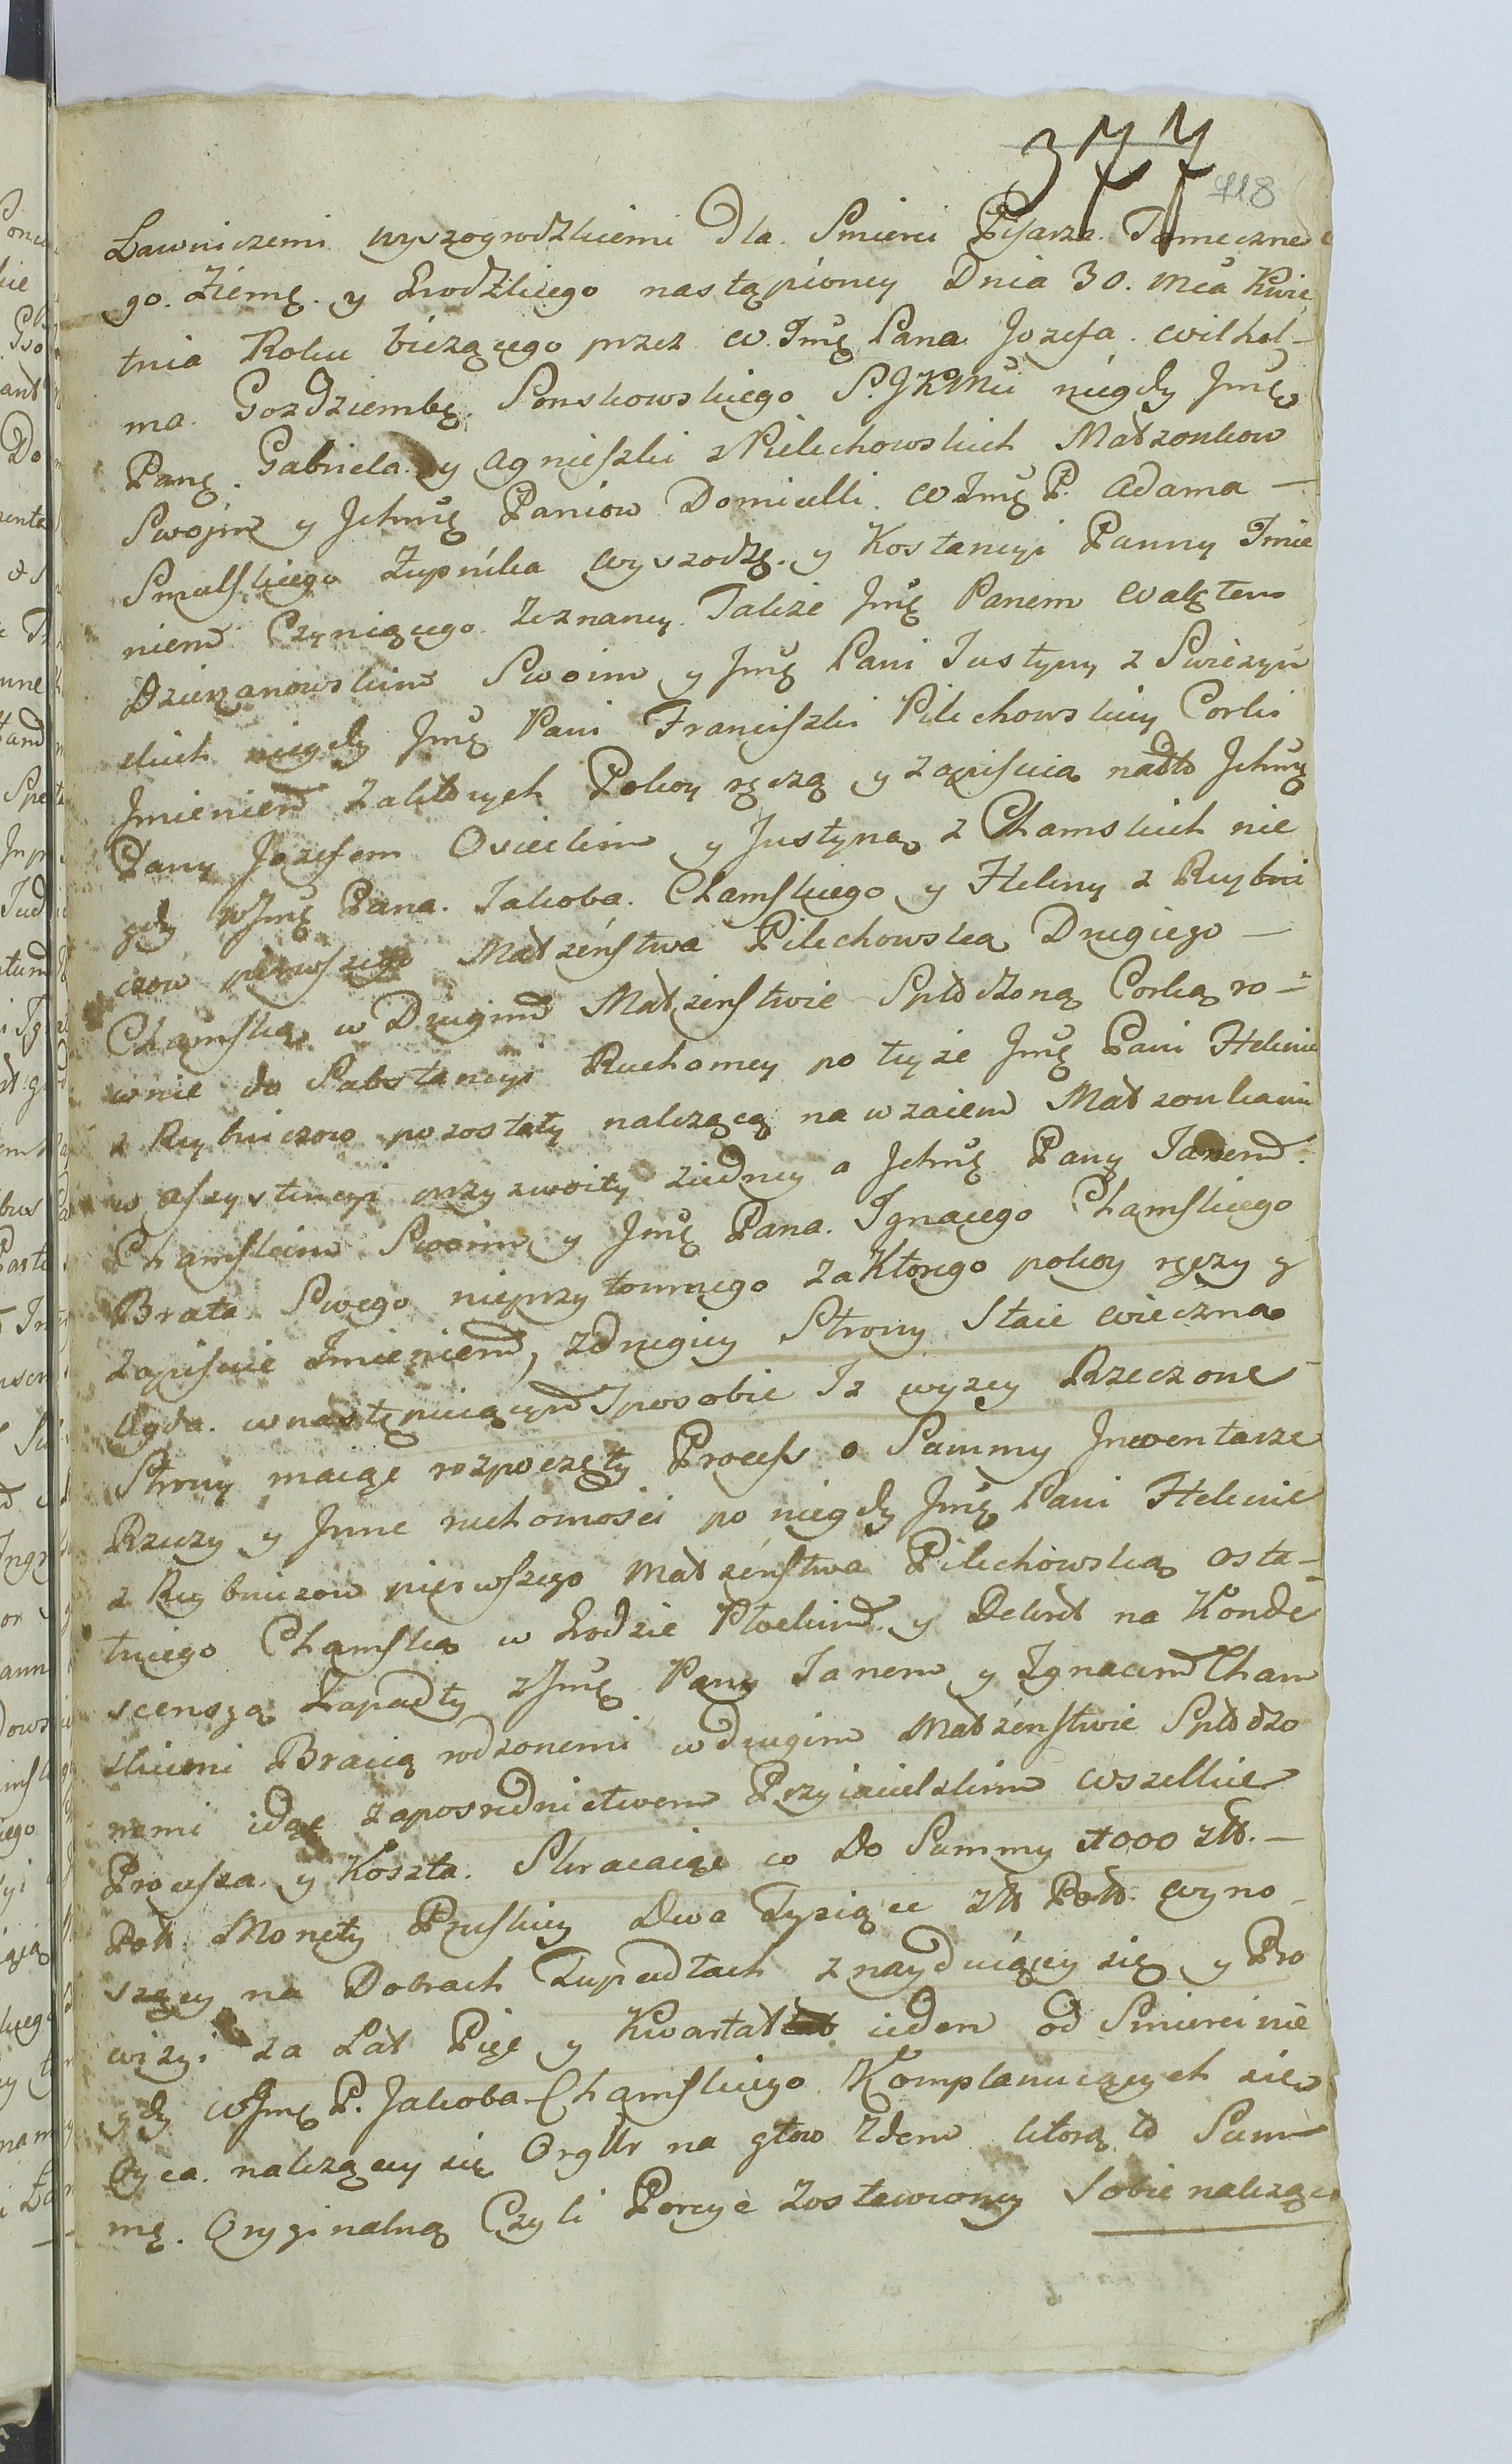 377
118
Ławniczemi wyszogrodzkiemi Dla Smierci Pisarza Tameczne
go. Ziemę. y Grodzkiego nastąpioney Dnia 30. mca Kwie
tnia Roku bieżącego przez W. Jmę Pana Jozefa Wilhel-
ma Gozdziembę Ponskowskiego S. JKMci niegdy Jmę
Panę. Gabriela y Agnieszki z Pilichowskich Małżonkow
Swojm y Jchmę Paniow Domicelli W Jmę P. Adama —
Smulskiego Łupnika Wyszodzg. y Kostancyi Panny Imie
niem Czyniącego Zeznaney. Także Jmę Panem Walętem
Dzierzanowskim Swoim y Jmę Pani Justyny z Swieżyń
skich niegdy Jmę Pani Franciszki Pilichowskiey Corki
Jmieniem zaktorych Pokoy ręczą y zapisuią nadto Jchmę
Pany Jozefem Osieckim y Justyną z Chamskich nie
gdy WJmę Pana. Jakoba. Chamskiego y Heleny z Ruybni
czow pierwszego Małżeństwa Pilichowską Drugiego —
Chamską w Drugim Małżenstwie Spłodzoną Corką ro-
wnie do Substancyi Ruchomey po teyże Jmę Pani Helenie
z Ruybniczow pozostały należącą na wzaiem Małzonkami
w assystencyi przyzwoity ziedney a Jchmę Pany Janem
Chamskim Swoim y Jmę Pana. Ignacego Chamskiego
Brata Swego nieprzytomnego za Ktorego pokoy ręczy y
zapisuie Jmieniem, zdrugiey Strony Staie wieczna
Ugoda. wnastępuiącym Sposobie Iz wyzey Rzeczone
Strony maiąc rozpoczęty Process o Summy Jnwentarze
Rzeczy y Jnne ruchomosci po niegdy Jmę Pani Helenie
z Ruybniczow pierwszego Małżeństwa Pilichowską osta-
tniego Chamską w Grodzie Płockim. y Dekret na Konde
scensyą Zapadły z Jmę Pany Janem y Ignacem Cham
skiemi Bracią rodzonemi wdrugim Małżeństwie Spłodzo
nemi idąc zaposrednictwem Przyiacielskim wszelkie
Processa y Koszta. Skracaiąc co Do Summy 4000 złł. —
Poll. Monety Pruskiey Dwa Tysiące złł Poll. wyno-
szącey na Dobrach Łupadłach znayduiącey się y Pro
wizyi za Lat Pięc y Kwartał ieden od Smierci nie
gdy WJmę P. Jakoba Chamskiego Komplanuiących się
Oyca należącey się na głow Idem ktorą to Sum
mę. Oryginalną Czyli Porcye zostawioney Sobie należące